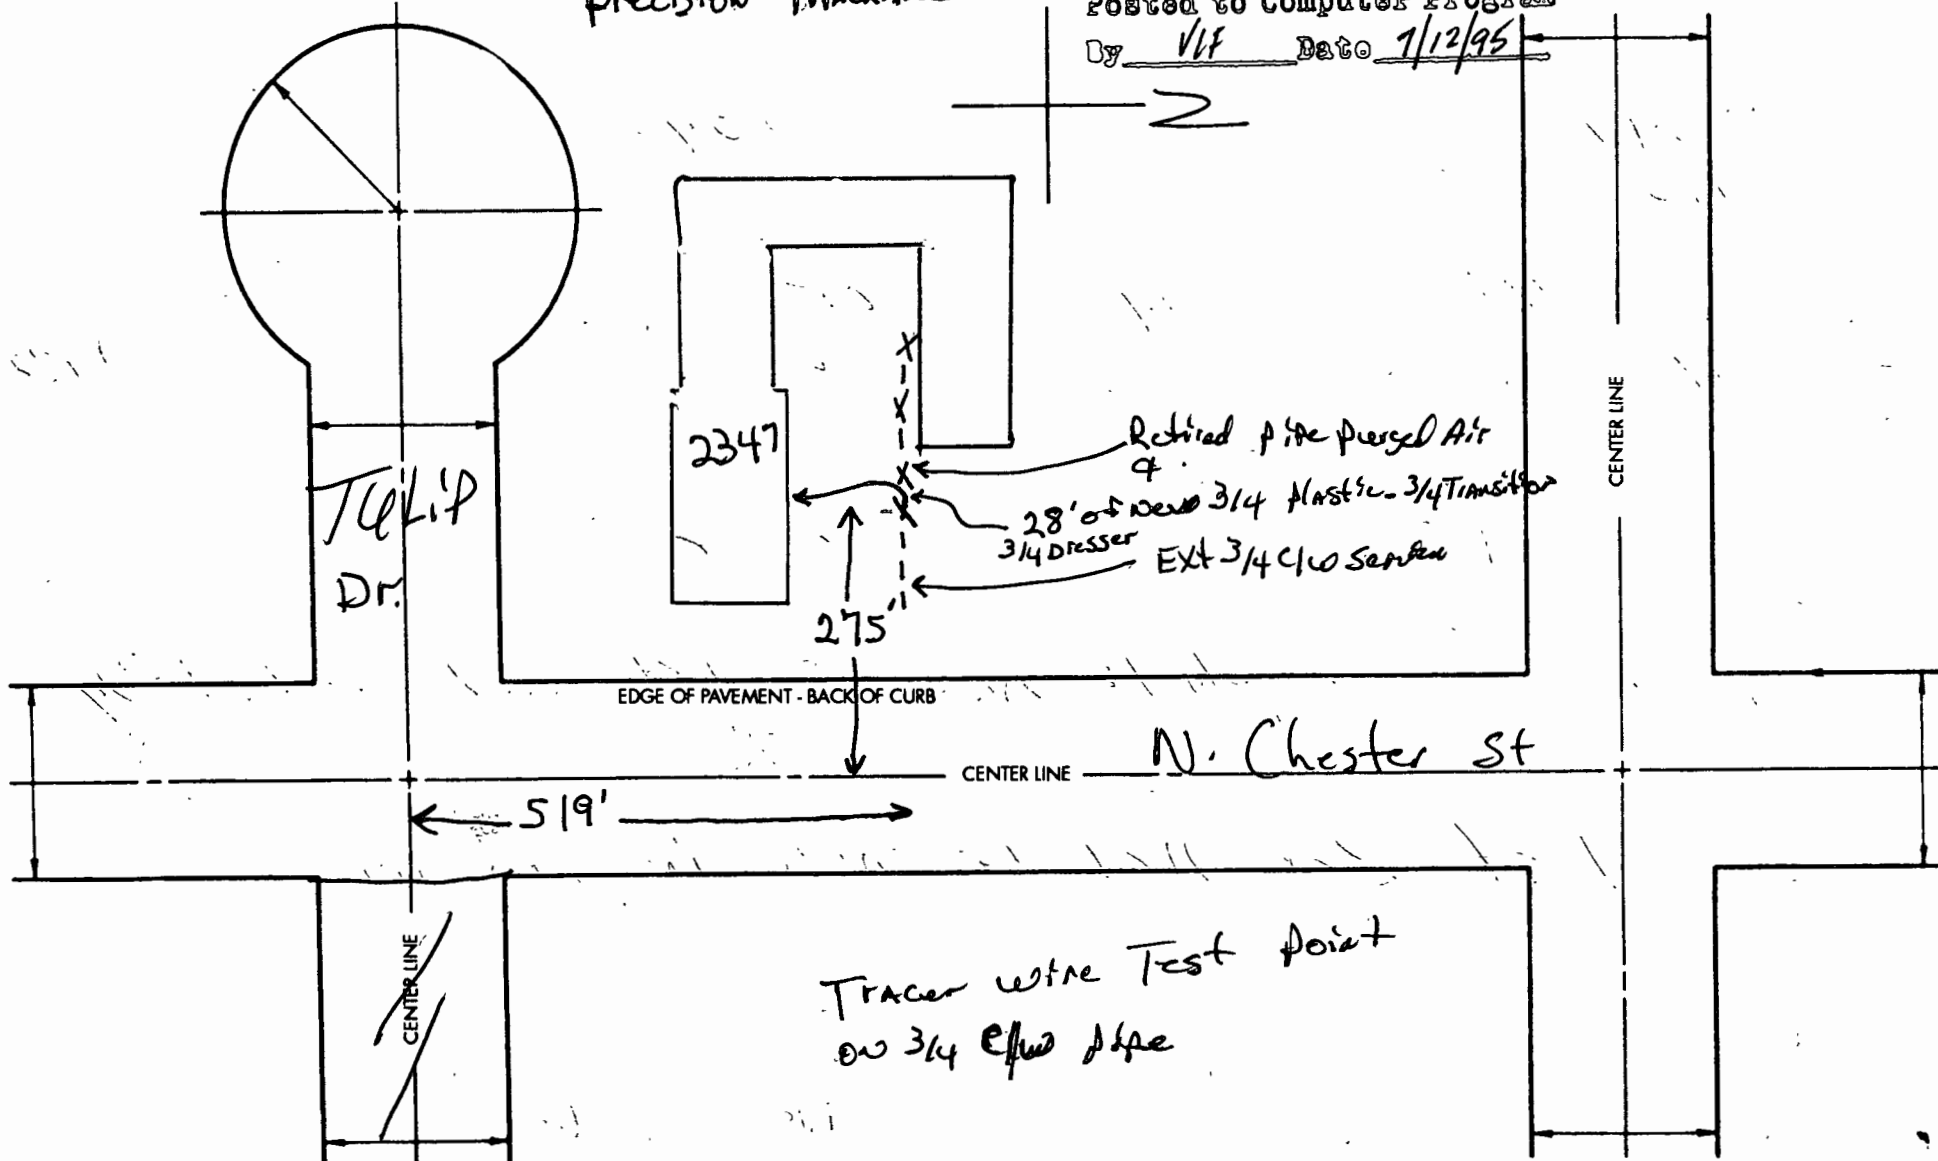 precision
Posted to Computer Program
By VLF Date 7/12/95
Z
CENTER LINE
2347
Retired pipe purged Air
&
28' of New 3/4 plastic - 3/4 Transition
3/4 Dresser
Ext 3/4 C/W Service
Tulip
Dr.
275'
EDGE OF PAVEMENT - BACK OF CURB
N. Chester St
CENTER LINE
519'
CENTER LINE
Tracer wire Test point
on 3/4 C/W pipe